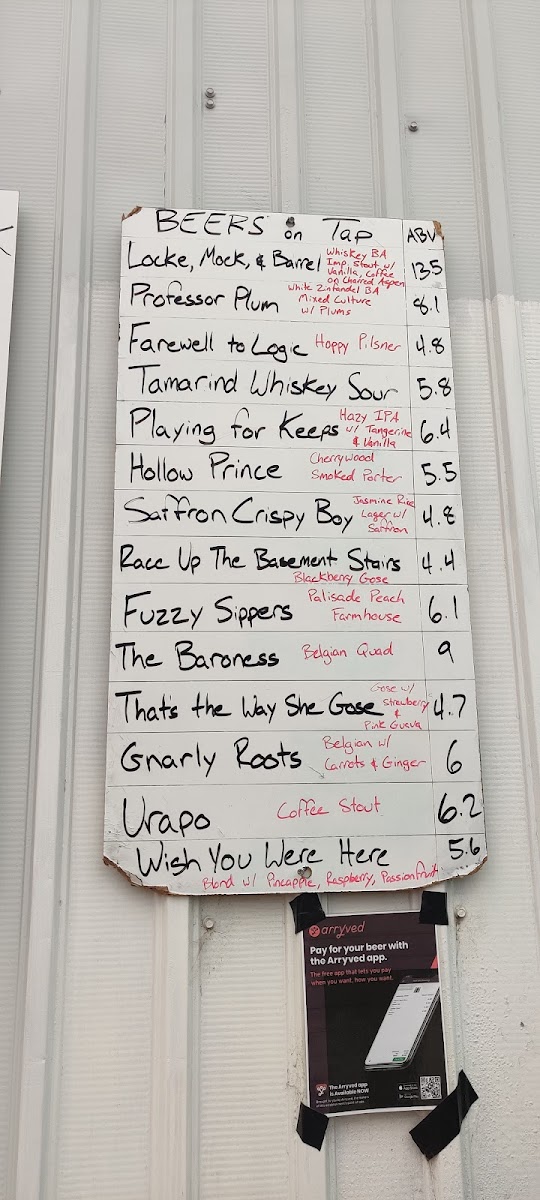 BEERS on Tap ABV
Locke, Mock, & Barrel Whiskey BA 13.5
Imp. Stout w/
Vanilla, Coffee
on Charred Aspen
Professor Plum White Zinfandel BA 8.1
Mixed Culture
w/ Plums
Farewell to Logic Hoppy Pilsner 4.8
Tamarind Whiskey Sour 5.8
Playing for Keeps Hazy IPA 6.4
w/ Tangerine
& Vanilla
Hollow Prince Cherrywood 5.5
Smoked Porter
Saffron Crispy Boy Jasmine Rice 4.8
Lager w/
Saffron
Race Up The Basement Stairs 4.4
Blackberry Gose
Fuzzy Sippers Palisade Peach 6.1
Farmhouse
The Baroness Belgian Quad 9
That's the Way She Gose Gose w/ 4.7
Strawberry
&
Pink Guava
Gnarly Roots Belgian w/ 6
Carrots & Ginger
Urapo Coffee Stout 6.2
Wish You Were Here 5.6
Blond w/ Pineapple, Raspberry, Passionfruit
arryved
Pay for your beer with
the Arryved app.
The free app that lets you pay
when you want, how you want.
The Arryved app
is Available NOW